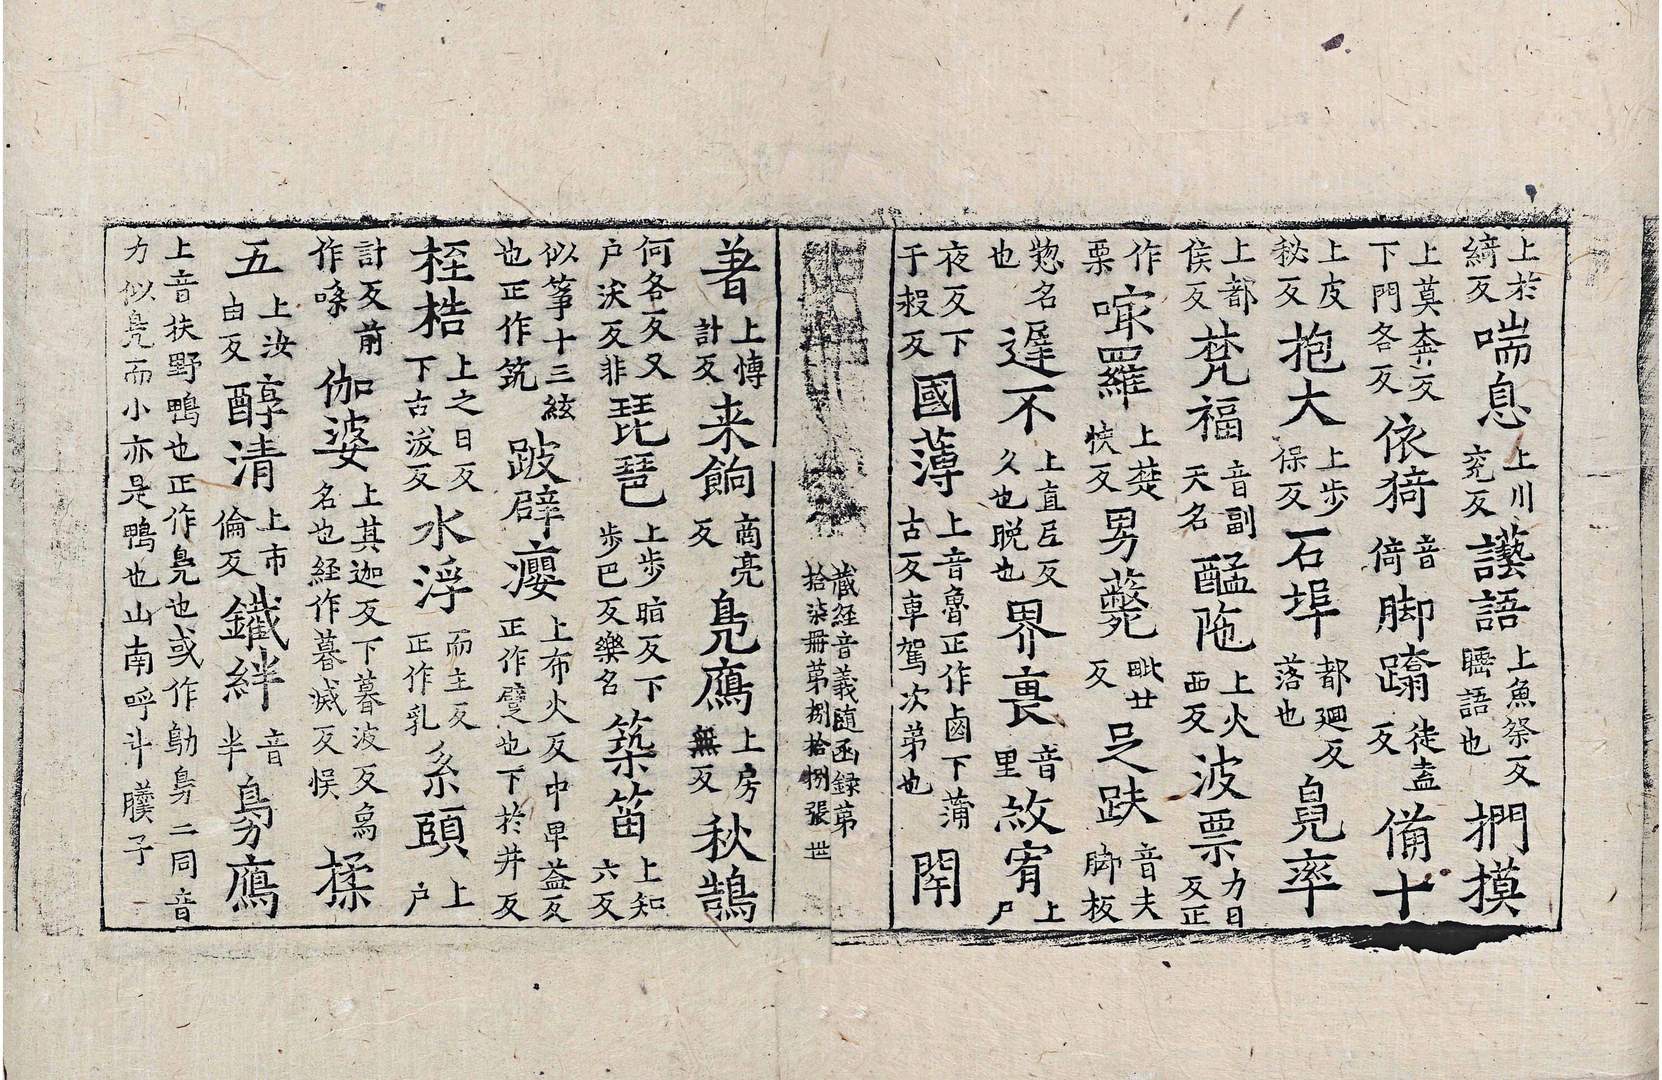 上於綺反喘息上川兖反讇語上魚祭反𥧌語也捫摸
上莫奔反下門各反依猗音倚脚蹹徒盍反備十
上皮秘反抱大上步保反石埠都廻反落也臯率
上都侯反梵福音副天名醯陁上火西反波票力日反正
作栗㗚羅上楚快反男薨毗廿反足趺音夫脚板
惣名也遲不上直尼反久也晚也界裏音里赦宥上尸
夜反下于救反國薄上音魯正作鹵下蒲古反車駕次第也閇
藏經音義随函録第拾柒冊第捌拾捌張 世
著上愽計反来餉商亮反鳧鴈上房無反秋鵠
何各反又户沃反非琵琶上步脂反下步巴反樂名築笛上知六反
似筝十三絃也正作筑跛躃癭上布火反中畀益反正作躄也下於井反
桎梏上之日反下古沃反水浮而主反正作乳系頭上户
計反前作嗘伽婆上其迦反下暮波反爲名也経作暮滅反悮揉
五上汝由反醇清上市倫反鐵絆音半鳬鴈
上音扶野鴨也正作鳧也或作鳨鳬二同音力似鳧而小亦是鴨也山南呼斗𦠄子